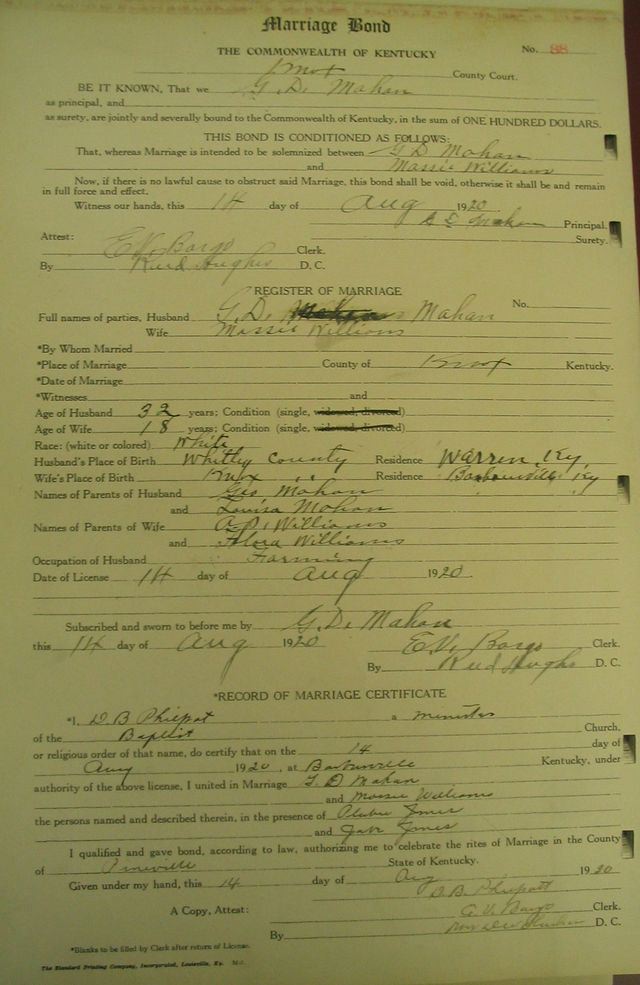 Marriage Bond
THE COMMONWEALTH OF KENTUCKY
No. 88
Knox County Court.
BE IT KNOWN, That we G. D. Mahan
as principal, and
as surety, are jointly and severally bound to the Commonwealth of Kentucky, in the sum of ONE HUNDRED DOLLARS.
THIS BOND IS CONDITIONED AS FOLLOWS:
That, whereas Marriage is intended to be solemnized between G D Mahan
and Massie Williams
Now, if there is no lawful cause to obstruct said Marriage, this bond shall be void, otherwise it shall be and remain
in full force and effect.
Witness our hands, this 14 day of Aug 1920
G D Mahan Principal.
Surety.
Attest:
E.V. Bargo Clerk.
By Reed Hughs D. C.
REGISTER OF MARRIAGE
No.
Full names of parties, Husband G. D. Mahan
Wife Massie Williams
*By Whom Married
*Place of Marriage County of Knox Kentucky.
*Date of Marriage
*Witnesses and
Age of Husband 32 years; Condition (single, widowed, divorced)
Age of Wife 18 years; Condition (single, widowed, divorced)
Race: (white or colored) White
Husband's Place of Birth Whitley County Residence Warren, Ky,
Wife's Place of Birth Knox " " Residence Barbourville, Ky
Names of Parents of Husband Geo Mahan
and Louisa Mahan
Names of Parents of Wife Williams
and Flora Williams
Occupation of Husband Farming
Date of License 14 day of Aug 1920.
Subscribed and sworn to before me by G. D. Mahan
this 14 day of Aug 1920 E.V. Bargo Clerk.
By Reed Hughs D. C.
*RECORD OF MARRIAGE CERTIFICATE
*I, D B Philpot a minister
of the Baptist Church,
or religious order of that name, do certify that on the 14 day of
Aug 1920, at Barbourville Kentucky, under
authority of the above license, I united in Marriage G D Mahan
and Massie Williams
the persons named and described therein, in the presence of Jones
and Jones
I qualified and gave bond, according to law, authorizing me to celebrate the rites of Marriage in the County
of Pineville State of Kentucky.
Given under my hand, this 14 day of Aug 1920
D. B. Philpott
A Copy, Attest: E. V. Bargo Clerk.
By D. C.
*Blanks to be filled by Clerk after return of License.
The Standard Printing Company, Incorporated, Louisville, Ky.